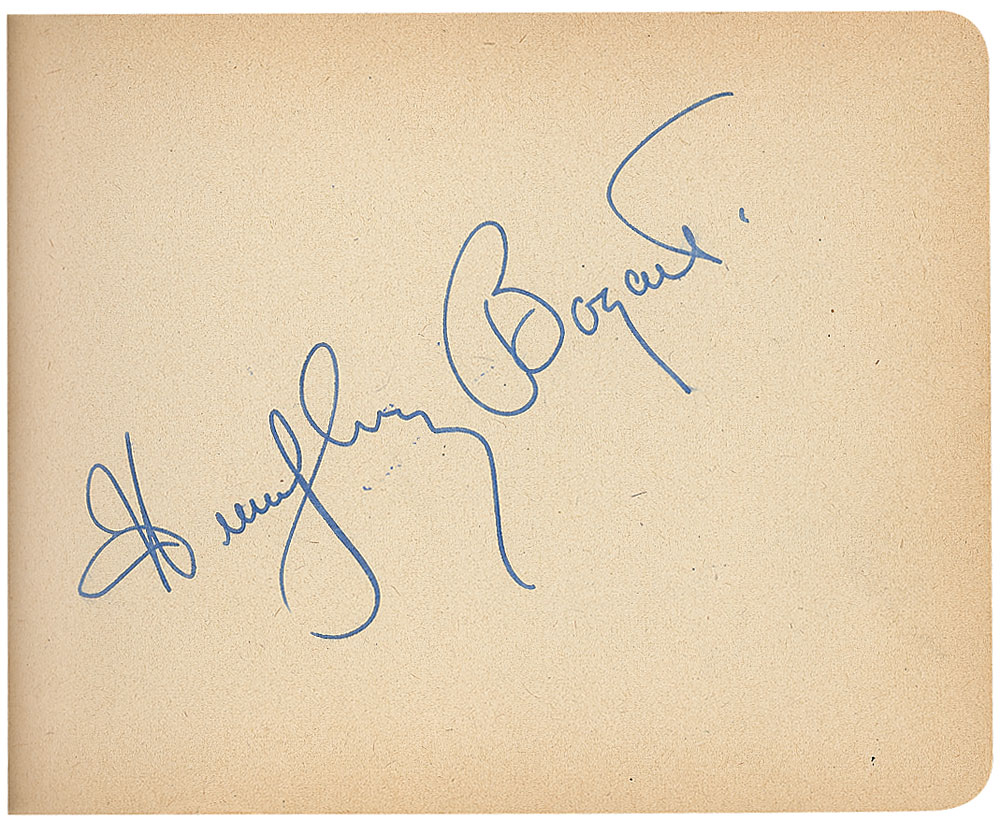 Humphrey Bogart.